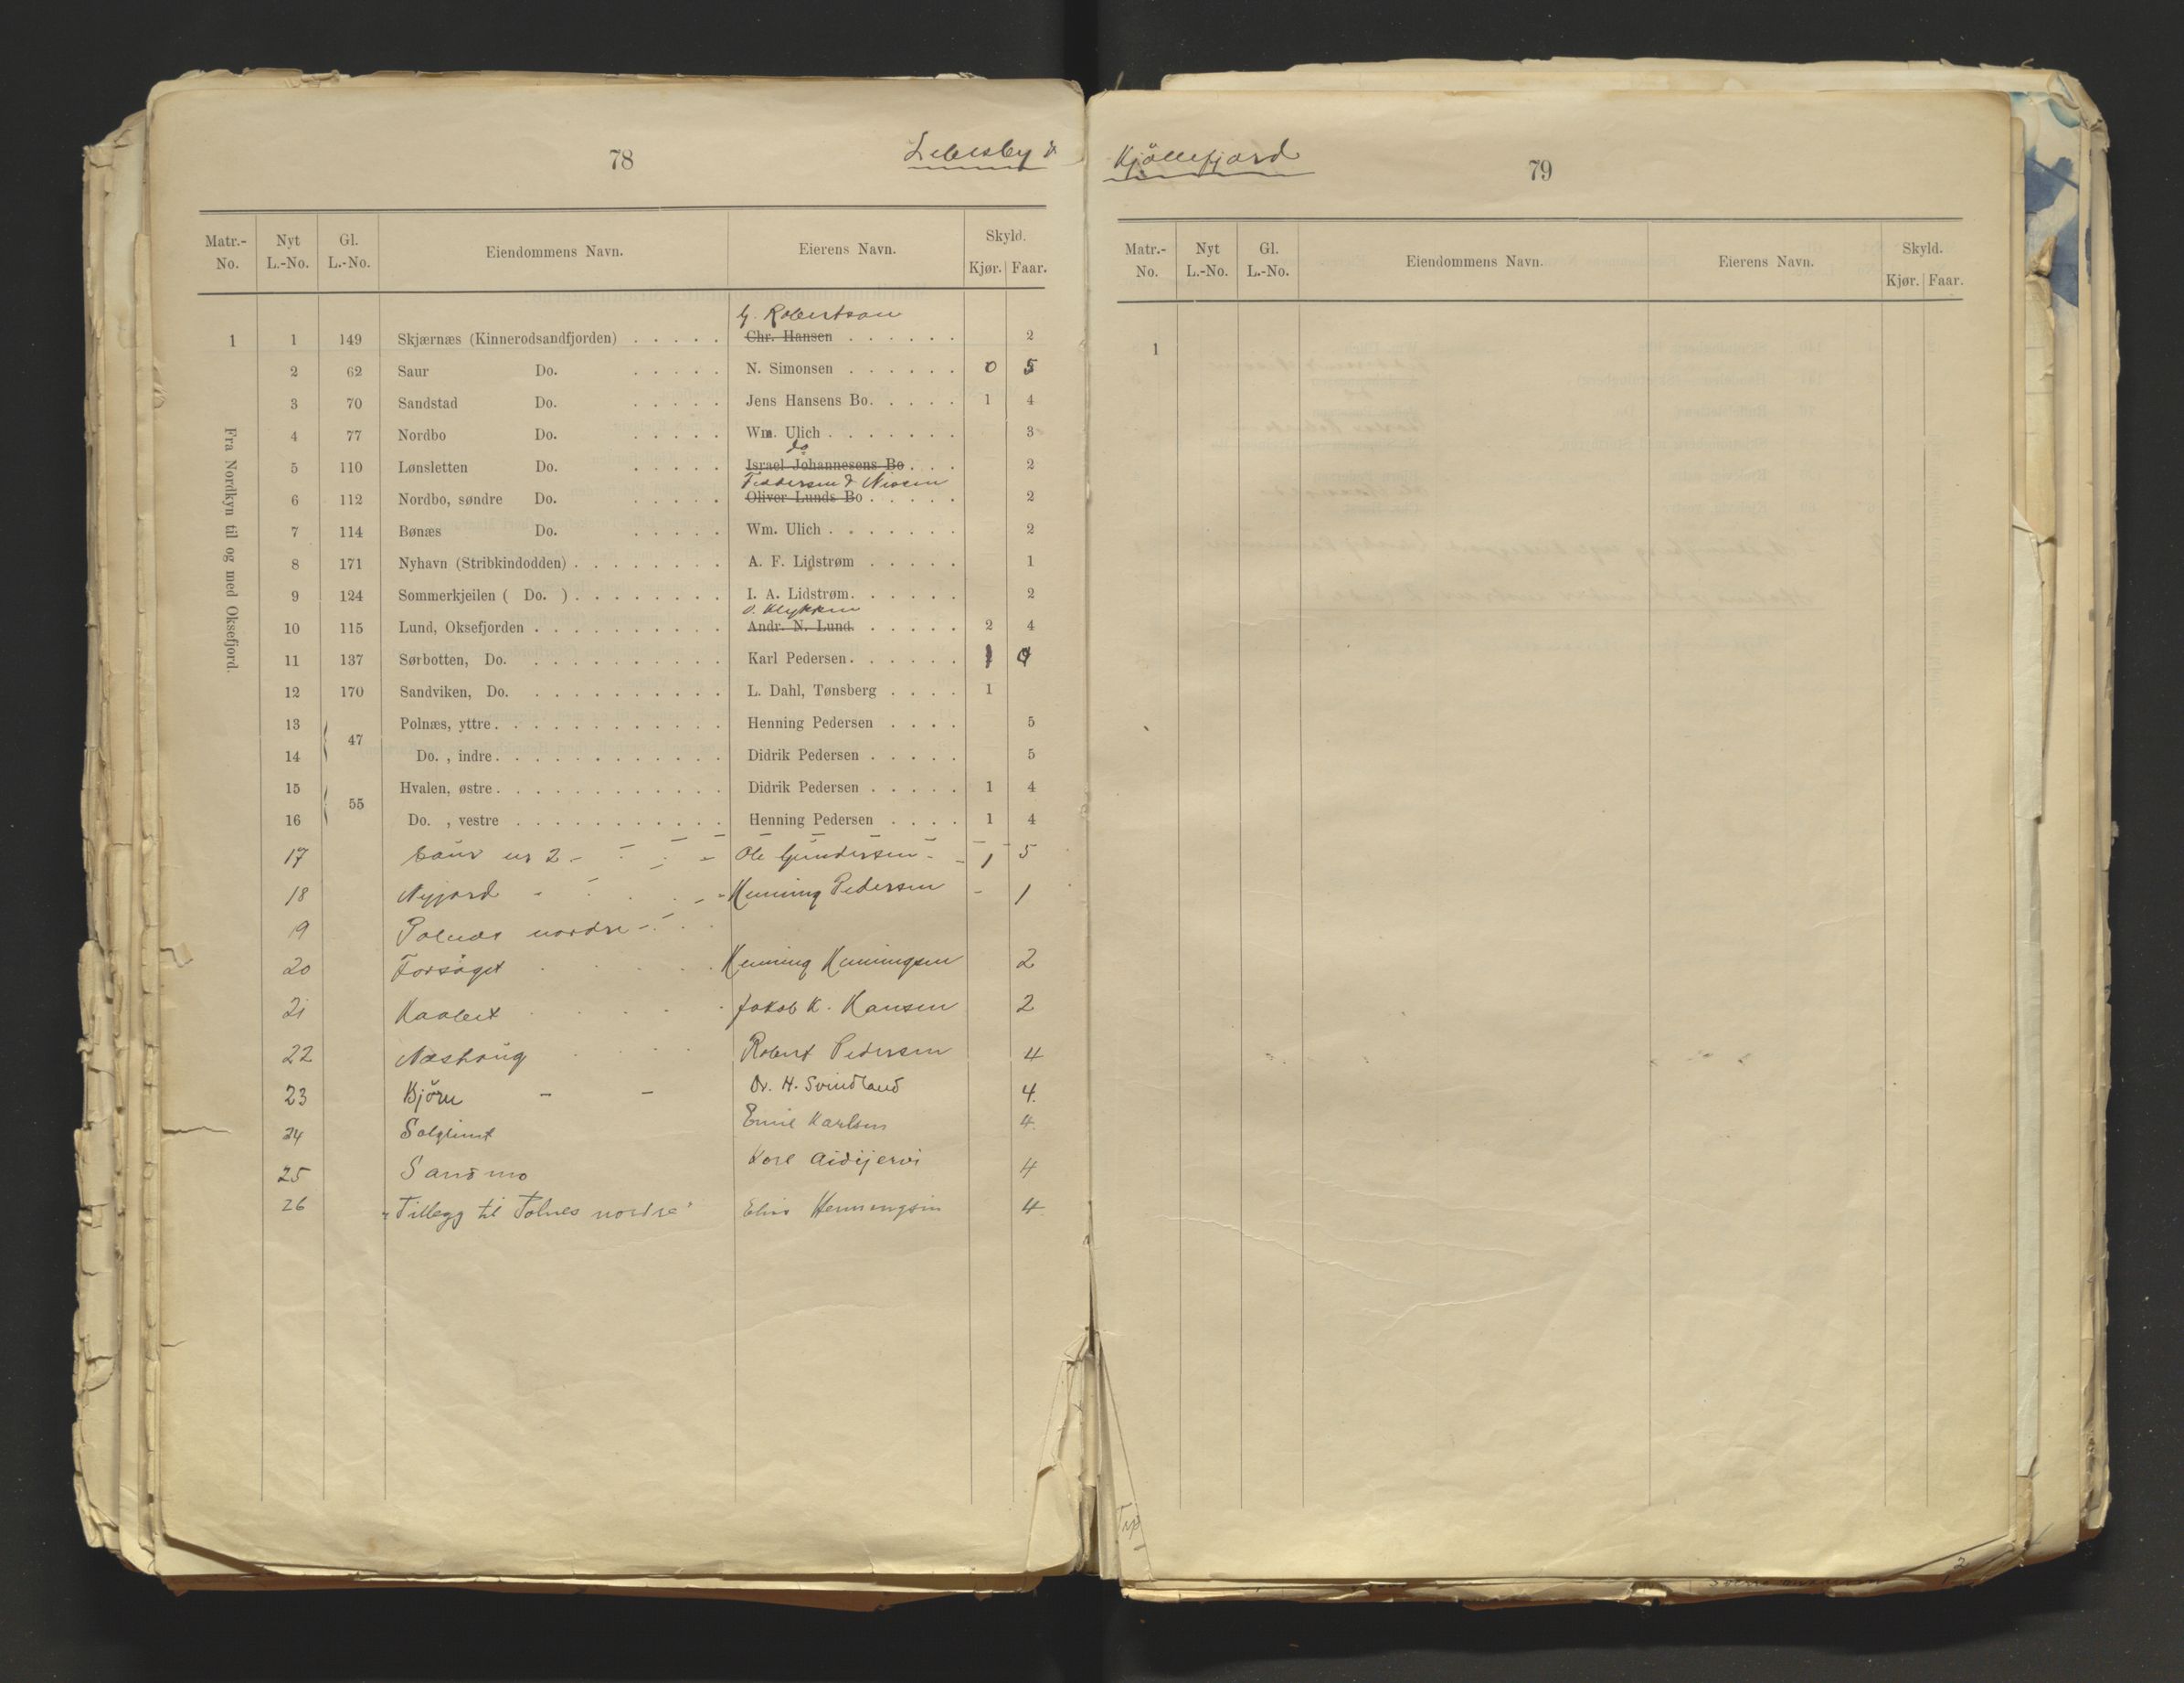 78
Lebesby &
Matr.-No. Nyt L.-No. Gl. L.-No. Eiendommens Navn. Eierens Navn. Skyld. Kjør. Faar.
Fra Nordkyn til og med Oksefjord.
G. Robertson
1 1 149 Skjærnæs (Kinnerodsandfjorden) . . . . . Chr. Hansen . . . . . . 2
2 62 Saur Do. . . . . . N. Simonsen . . . . . . 0 5
3 70 Sandstad Do. . . . . . Jens Hansens Bo. . . . . 1 4
4 77 Nordbo Do. . . . . . Wm. Ulich . . . . . . . 3
do
5 110 Lønsletten Do. . . . . . Israel Johannesens Bo . . . 2
Feddersen & Nissen
6 112 Nordbo, søndre Do. . . . . . Oliver Lunds Bo . . . . . 2
7 114 Bønæs Do. . . . . . Wm. Ulich . . . . . . . 2
8 171 Nyhavn (Stribkindodden) . . . . . . . . A. F. Lidstrøm . . . . . 1
9 124 Sommerkjeilen ( Do. ) . . . . . . . . I. A. Lidstrøm. . . . . . 2
O. Klykken
10 115 Lund, Oksefjorden . . . . . . . . . . Andr. N. Lund. . . . . . 2 4
11 137 Sørbotten, Do. . . . . . . . . . . Karl Pedersen. . . . . . 1 0
12 170 Sandviken, Do. . . . . . . . . . . L. Dahl, Tønsberg . . . . 1
13 Polnæs, yttre. . . . . . . . . . . . Henning Pedersen . . . . 5
47
14 Do. , indre. . . . . . . . . . . . Didrik Pedersen . . . . . 5
15 Hvalen, østre. . . . . . . . . . . . Didrik Pedersen . . . . . 1 4
55
16 Do. , vestre . . . . . . . . . . . Henning Pedersen . . . . 1 4
17 Saur nr 2 - Ole Gundersen - 1 5
18 Nyjord - Henning Pedersen - 1
9 Polnæs nordre -
20 Forsöget Henning Henningsen 2
21 Jakob K. Hansen 2
22 Næshaug Robert Pedersen 4
23 Björn - - Dr. H. Svindland 4.
24 Solglimt Emil Karlsen 4.
25 Sandmo Aidijervi 4
26 "Tillegg til Polnes nordre" Henningsen 4
Kjöllefjord
79
Matr.-No. Nyt L.-No. Gl. L.-No. Eiendommens Navn. Eierens Navn. Skyld. Kjør. Faar.
1